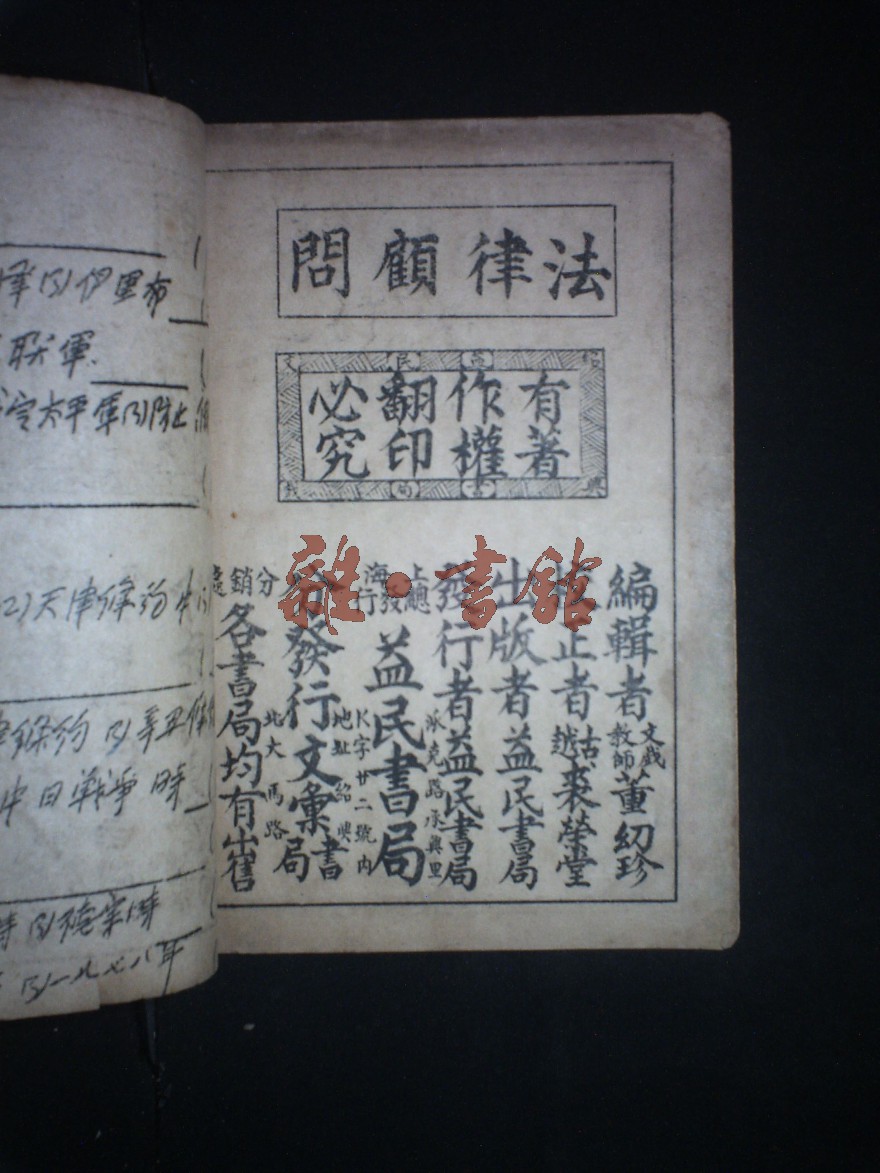 法律顧問
紹益民文
有著作權翻印必究
興書局
編輯者文戲教師董紉珍
正者古越裘榮堂
出版者益民書局
發行者益民書局
上海總發行益民書局
派克路承興里
K字廿二號內
分發行文彙書局
地址紹興
北大馬路
分銷處各書局均有出售
雜·書館
伊里布
聯軍
太平軍(3)防止
(2)天津條約
條約(3)辛丑條
中日戰爭時
(3)德宗時
(3)一九七八年